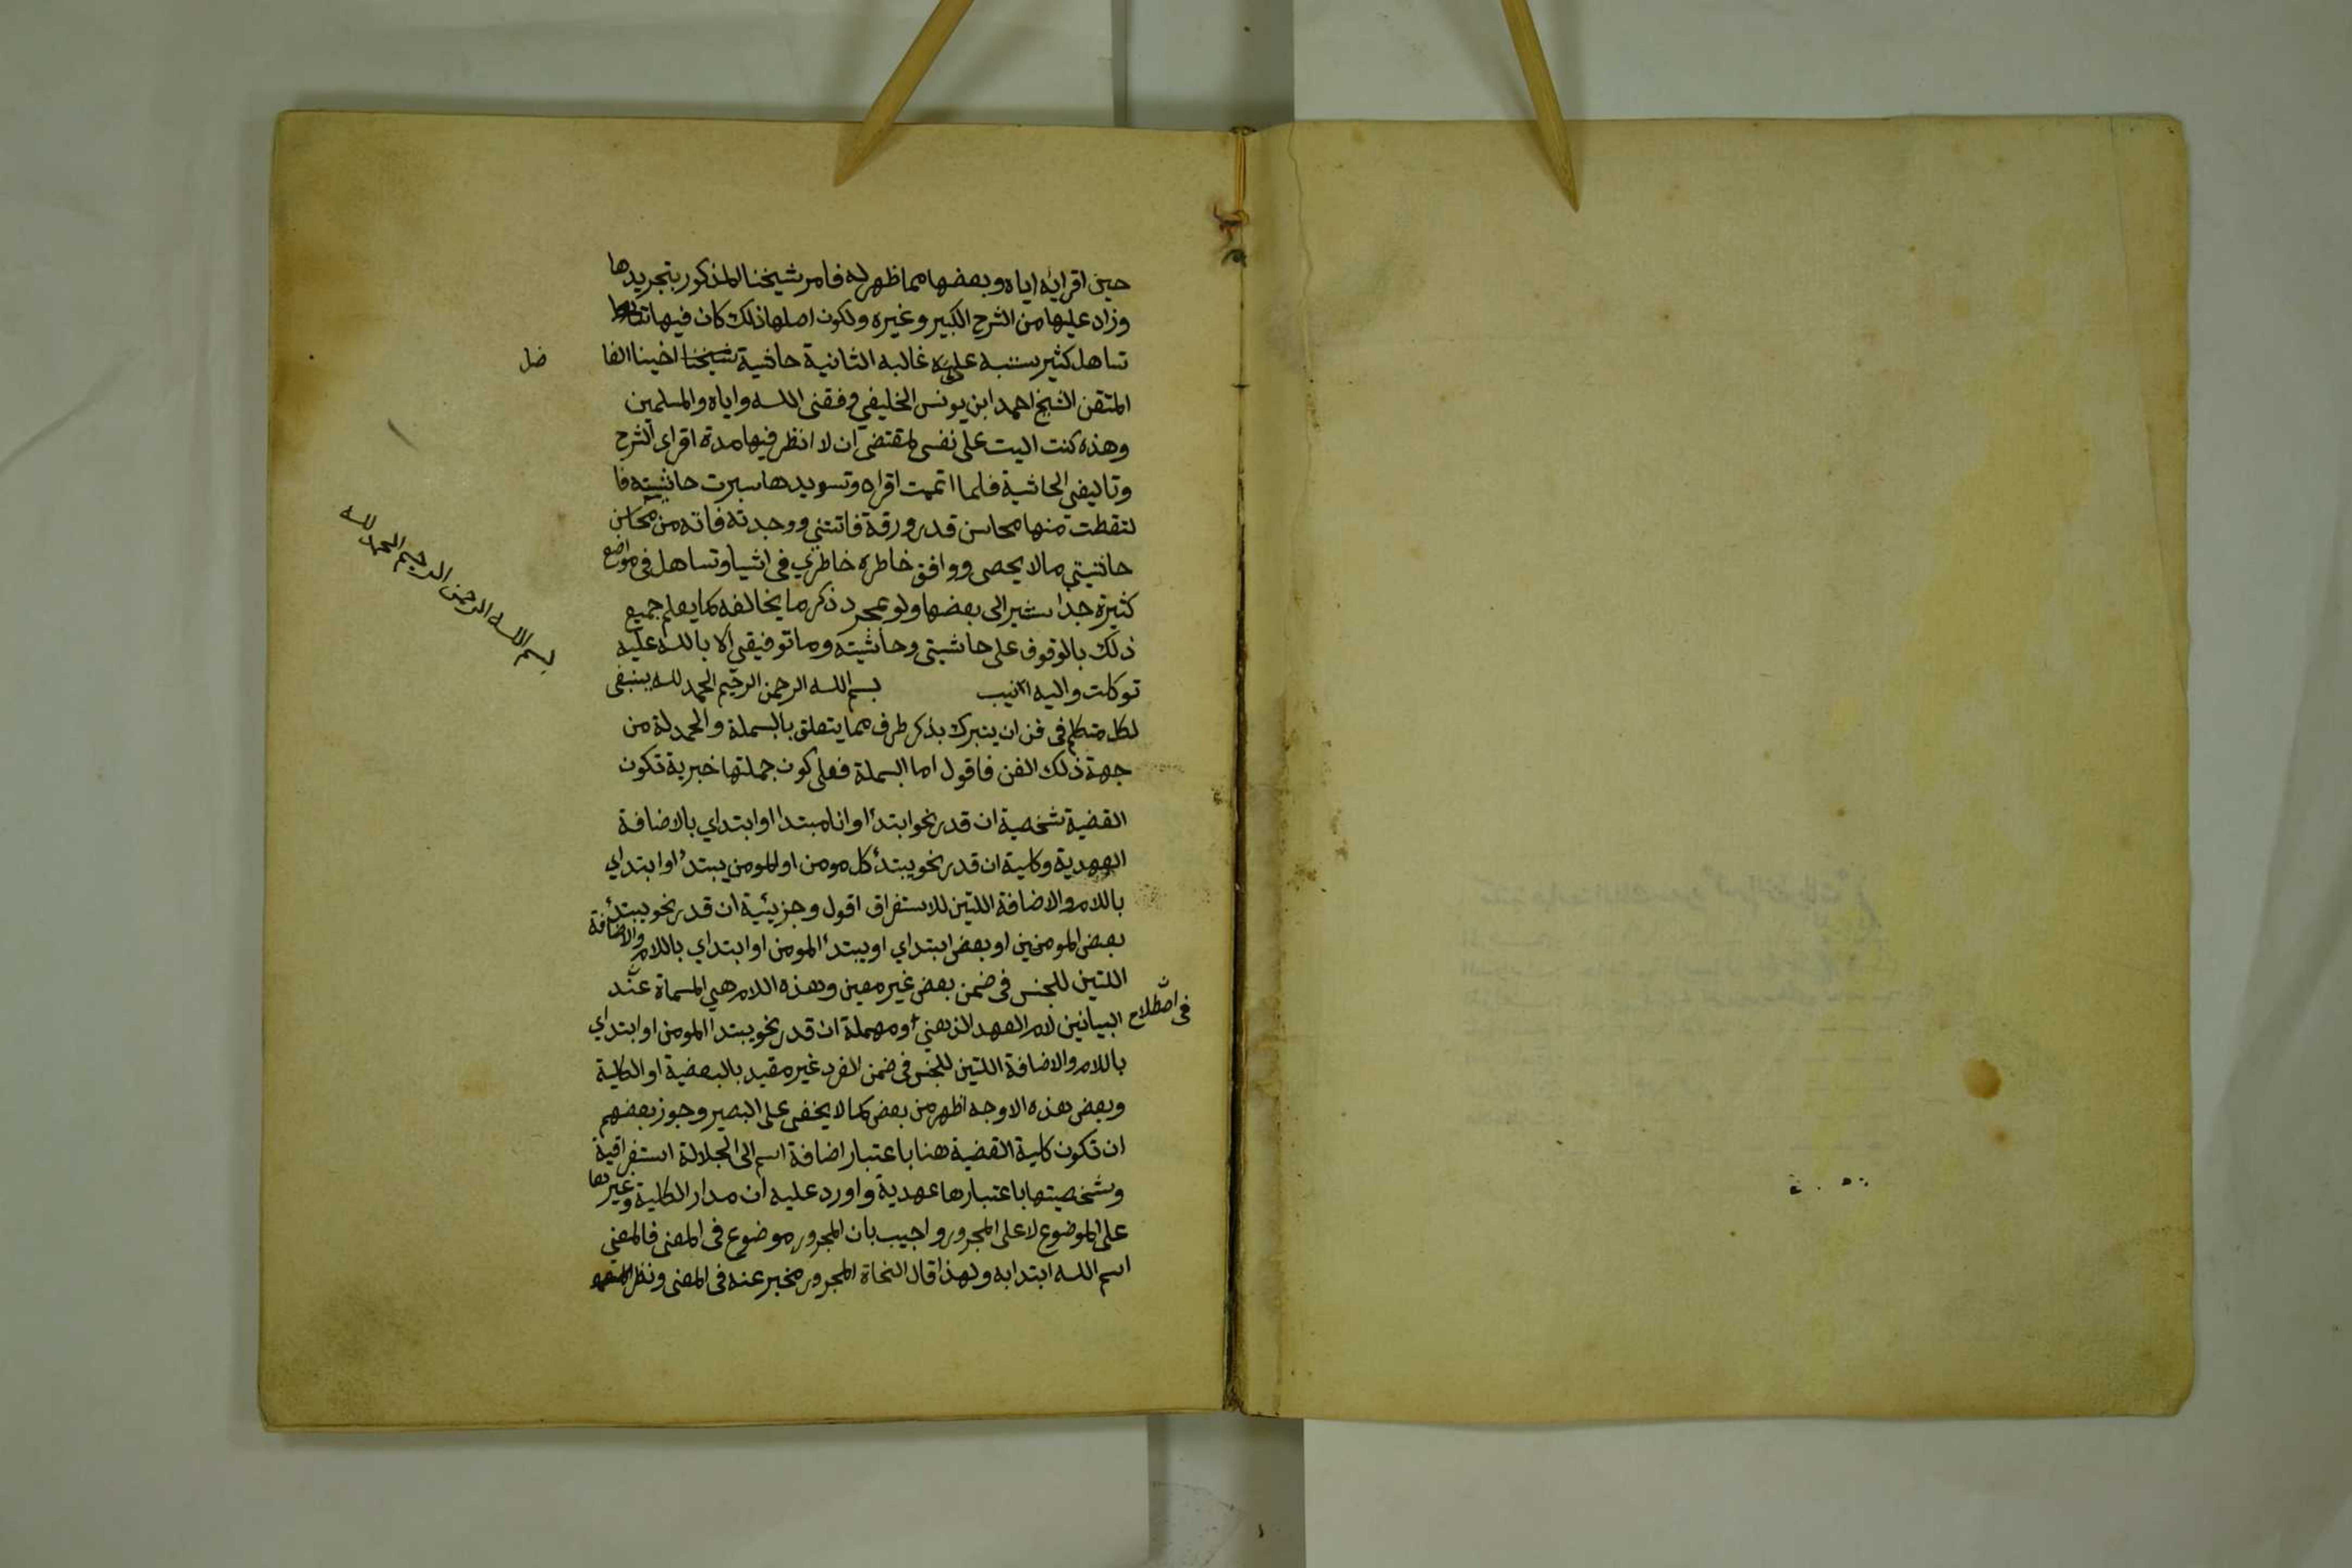 حين اقرايه اياه وبعضها مما ظهر له فامر شيخنا المذكور بتجريدها
وزاد عليها من الشرح الكبير وغيره ولكون اصلها ذلك كان فيها
تساهل كثير ستنبه على غالبه الثانية حاشية شيخنا اخينا الفا
ضل
المتقن الشيخ احمد ابن يونس الخليفي وفقني الله واياه والمسلمين
وهذه كنت اليت على نفسي لمقتضى ان لا انظر فيها مدة اقراي الشرح
وتاليفي الحاشية فلما اتممت اقراه وتسويدها سبرت حاشيته فا
لتقطت منها محاسن قدر ورقة فاتتني ووجدته فاته من محاسن
حاشيتي ما لا يحصى ووافق خاطره خاطري في اشيا وتساهل في مواضع
كثيرة جدا نشير الى بعضها ولو بمجرد ذكر ما يخالفه كما يعلم جميع
ذلك بالوقوف على حاشيتي وحاشيته وما توفيقي الا بالله عليه
توكلت واليه انيب بسم الله الرحمن الرحيم الحمد لله ينبغي
لكل متكلم في فن ان يتبرك بذكر طرف مما يتعلق بالبسملة والحمدلة من
جهة ذلك الفن فاقول اما البسملة فعلى كون جملتها خبرية تكون
القضية شخصية ان قدر نحو ابتدأ او انا مبتدا او ابتداي بالاضافة
العهدية وكلية ان قدر نحو يبتدأ كل مومن او المومن يبتدأ او ابتداي
باللام والاضافة اللتين للاستغراق اقول وجزيئية ان قدر نحو يبتدأ
بعض المومنين او بعض ابتداي او يبتدأ المومن او ابتداي باللام والاضافة
اللتين للجنس في ضمن بعض غير معين وهذه اللام هي المسماة عند
البيانين لام العهد الذهني او مهملة ان قدر نحو يبتدا المومن او ابتداي
في اصطلاح
باللام والاضافة اللتين للجنس في ضمن الفرد غير مقيد بالبعضية او الكلية
وبعض هذه الاوجه اظهر من بعض كما لا يخفى على البصير وجوز بعضهم
ان تكون كلية القضية هنا باعتبار اضافة اسم الى الجلالة استغراقية
وشخصيتها باعتبارها عهدية واورد عليه ان مدار الكلية وغيرها
على الموضوع لا على المجرور واجيب بان المجرور موضوع في المعنى فالمعنى
اسم الله ابتدا به ولهذا قال النحاة المجرور مخبر عنه في المعنى ونظر
بسم الله الرحمن الرحيم الحمد لله